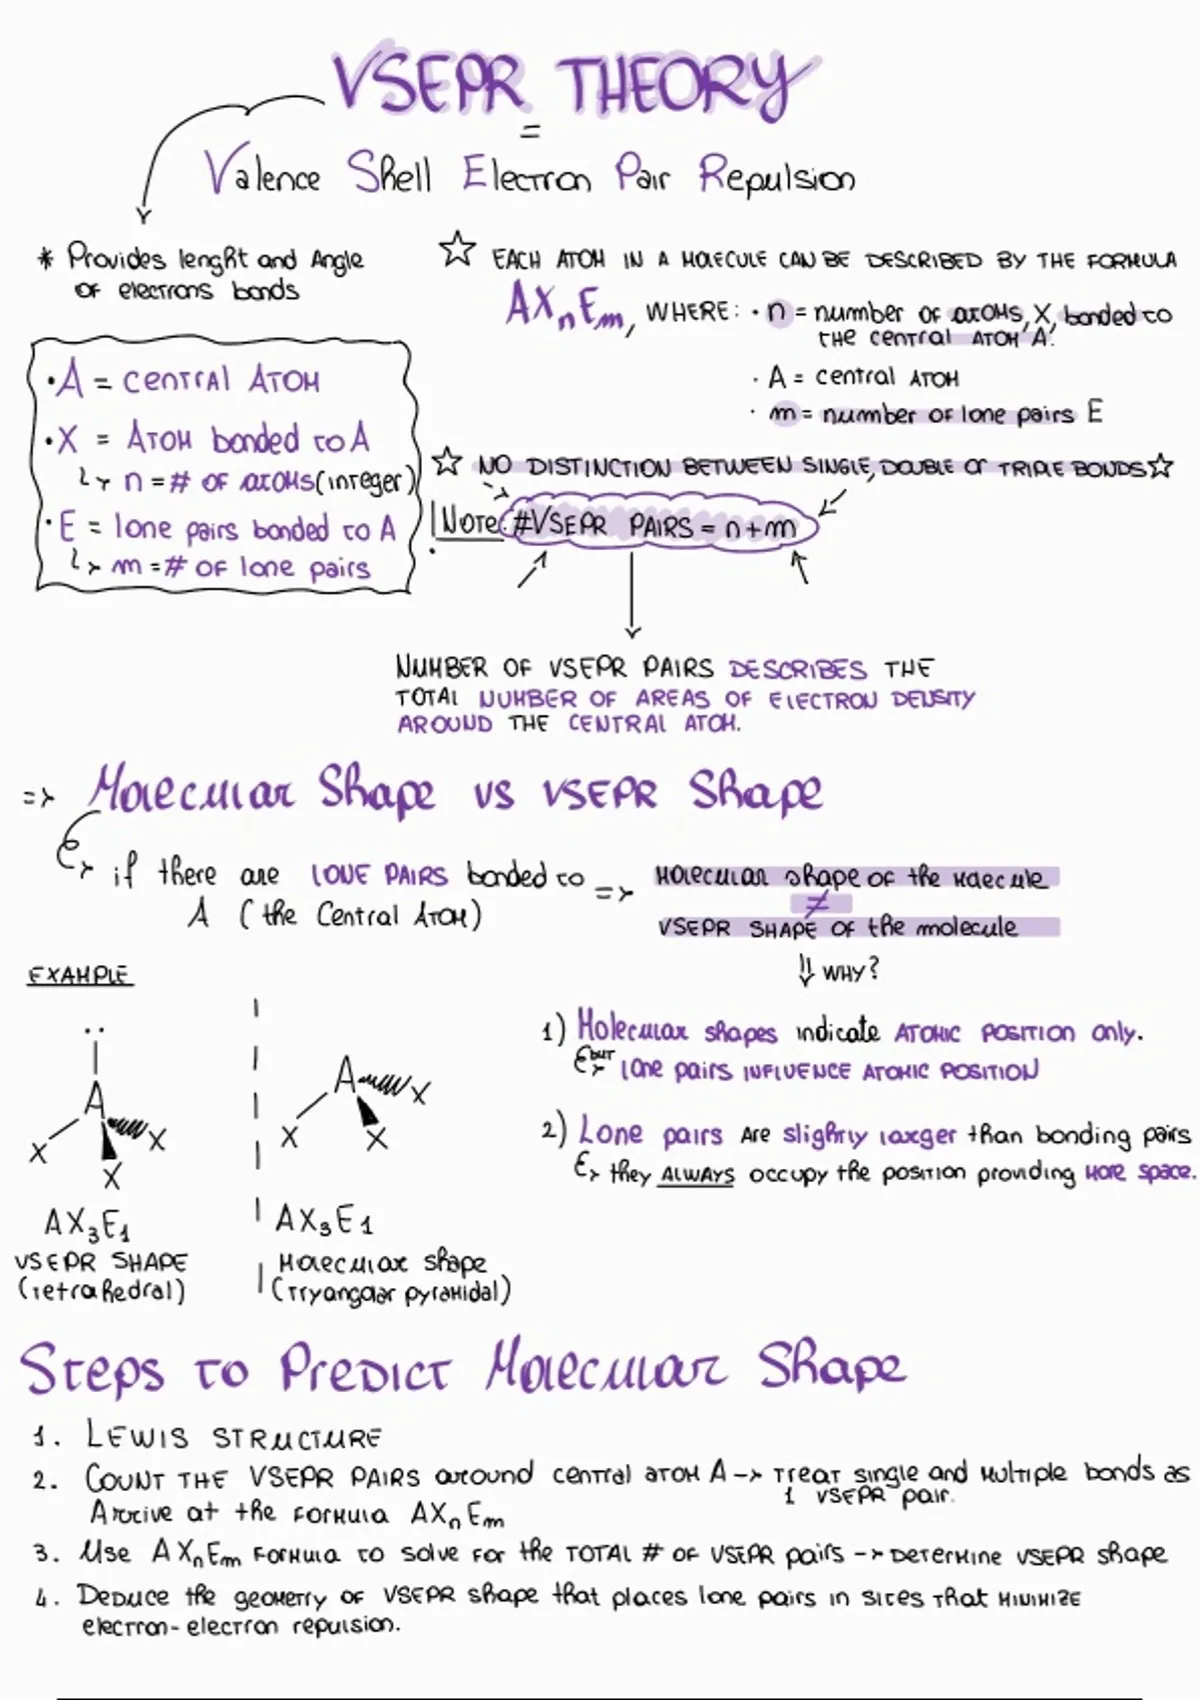 VSEPR THEORY
=
Valence Shell Electron Pair Repulsion
* Provides lenght and Angle
of electrons bonds
☆ EACH ATOM IN A MOLECULE CAN BE DESCRIBED BY THE FORMULA
AXₙEₘ, WHERE: · n = number of atoms, X, bonded to
the central ATOM A.
· A = central ATOM
· m = number of lone pairs E
· A = central ATOM
· X = ATOM bonded to A
↳ n = # OF atoms (integer)
· E = lone pairs bonded to A
↳ m = # OF lone pairs
☆ NO DISTINCTION BETWEEN SINGLE, DOUBLE or TRIPLE BONDS ☆
Note: #VSEPR PAIRS = n + m
NUMBER OF VSEPR PAIRS DESCRIBES THE
TOTAL NUMBER OF AREAS OF ELECTRON DENSITY
AROUND THE CENTRAL ATOM.
=> Molecular Shape vs VSEPR Shape
if there are LONE PAIRS bonded to
A (the Central Atom)
=> Molecular shape of the molecule
≠
VSEPR SHAPE OF the molecule
⇓ WHY?
EXAMPLE
··
A
X
X
X
AX₃E₁
VSEPR SHAPE
(tetrahedral)
A
X
X
X
AX₃E₁
Molecular shape
(Tryangolar pyramidal)
1) Molecular shapes indicate ATOMIC POSITION only.
but lone pairs INFLUENCE ATOMIC POSITION
2) Lone pairs Are slightly larger than bonding pairs
they ALWAYS occupy the position providing more space.
Steps to Predict Molecular Shape
1. LEWIS STRUCTURE
2. COUNT THE VSEPR PAIRS around central atom A -> Treat single and multiple bonds as
1 VSEPR pair.
Arrive at the formula AXₙEₘ
3. Use AXₙEₘ formula to solve for the TOTAL # OF VSEPR pairs -> Determine VSEPR shape
4. Deduce the geometry of VSEPR shape that places lone pairs in sites that MINIMIZE
electron-electron repulsion.